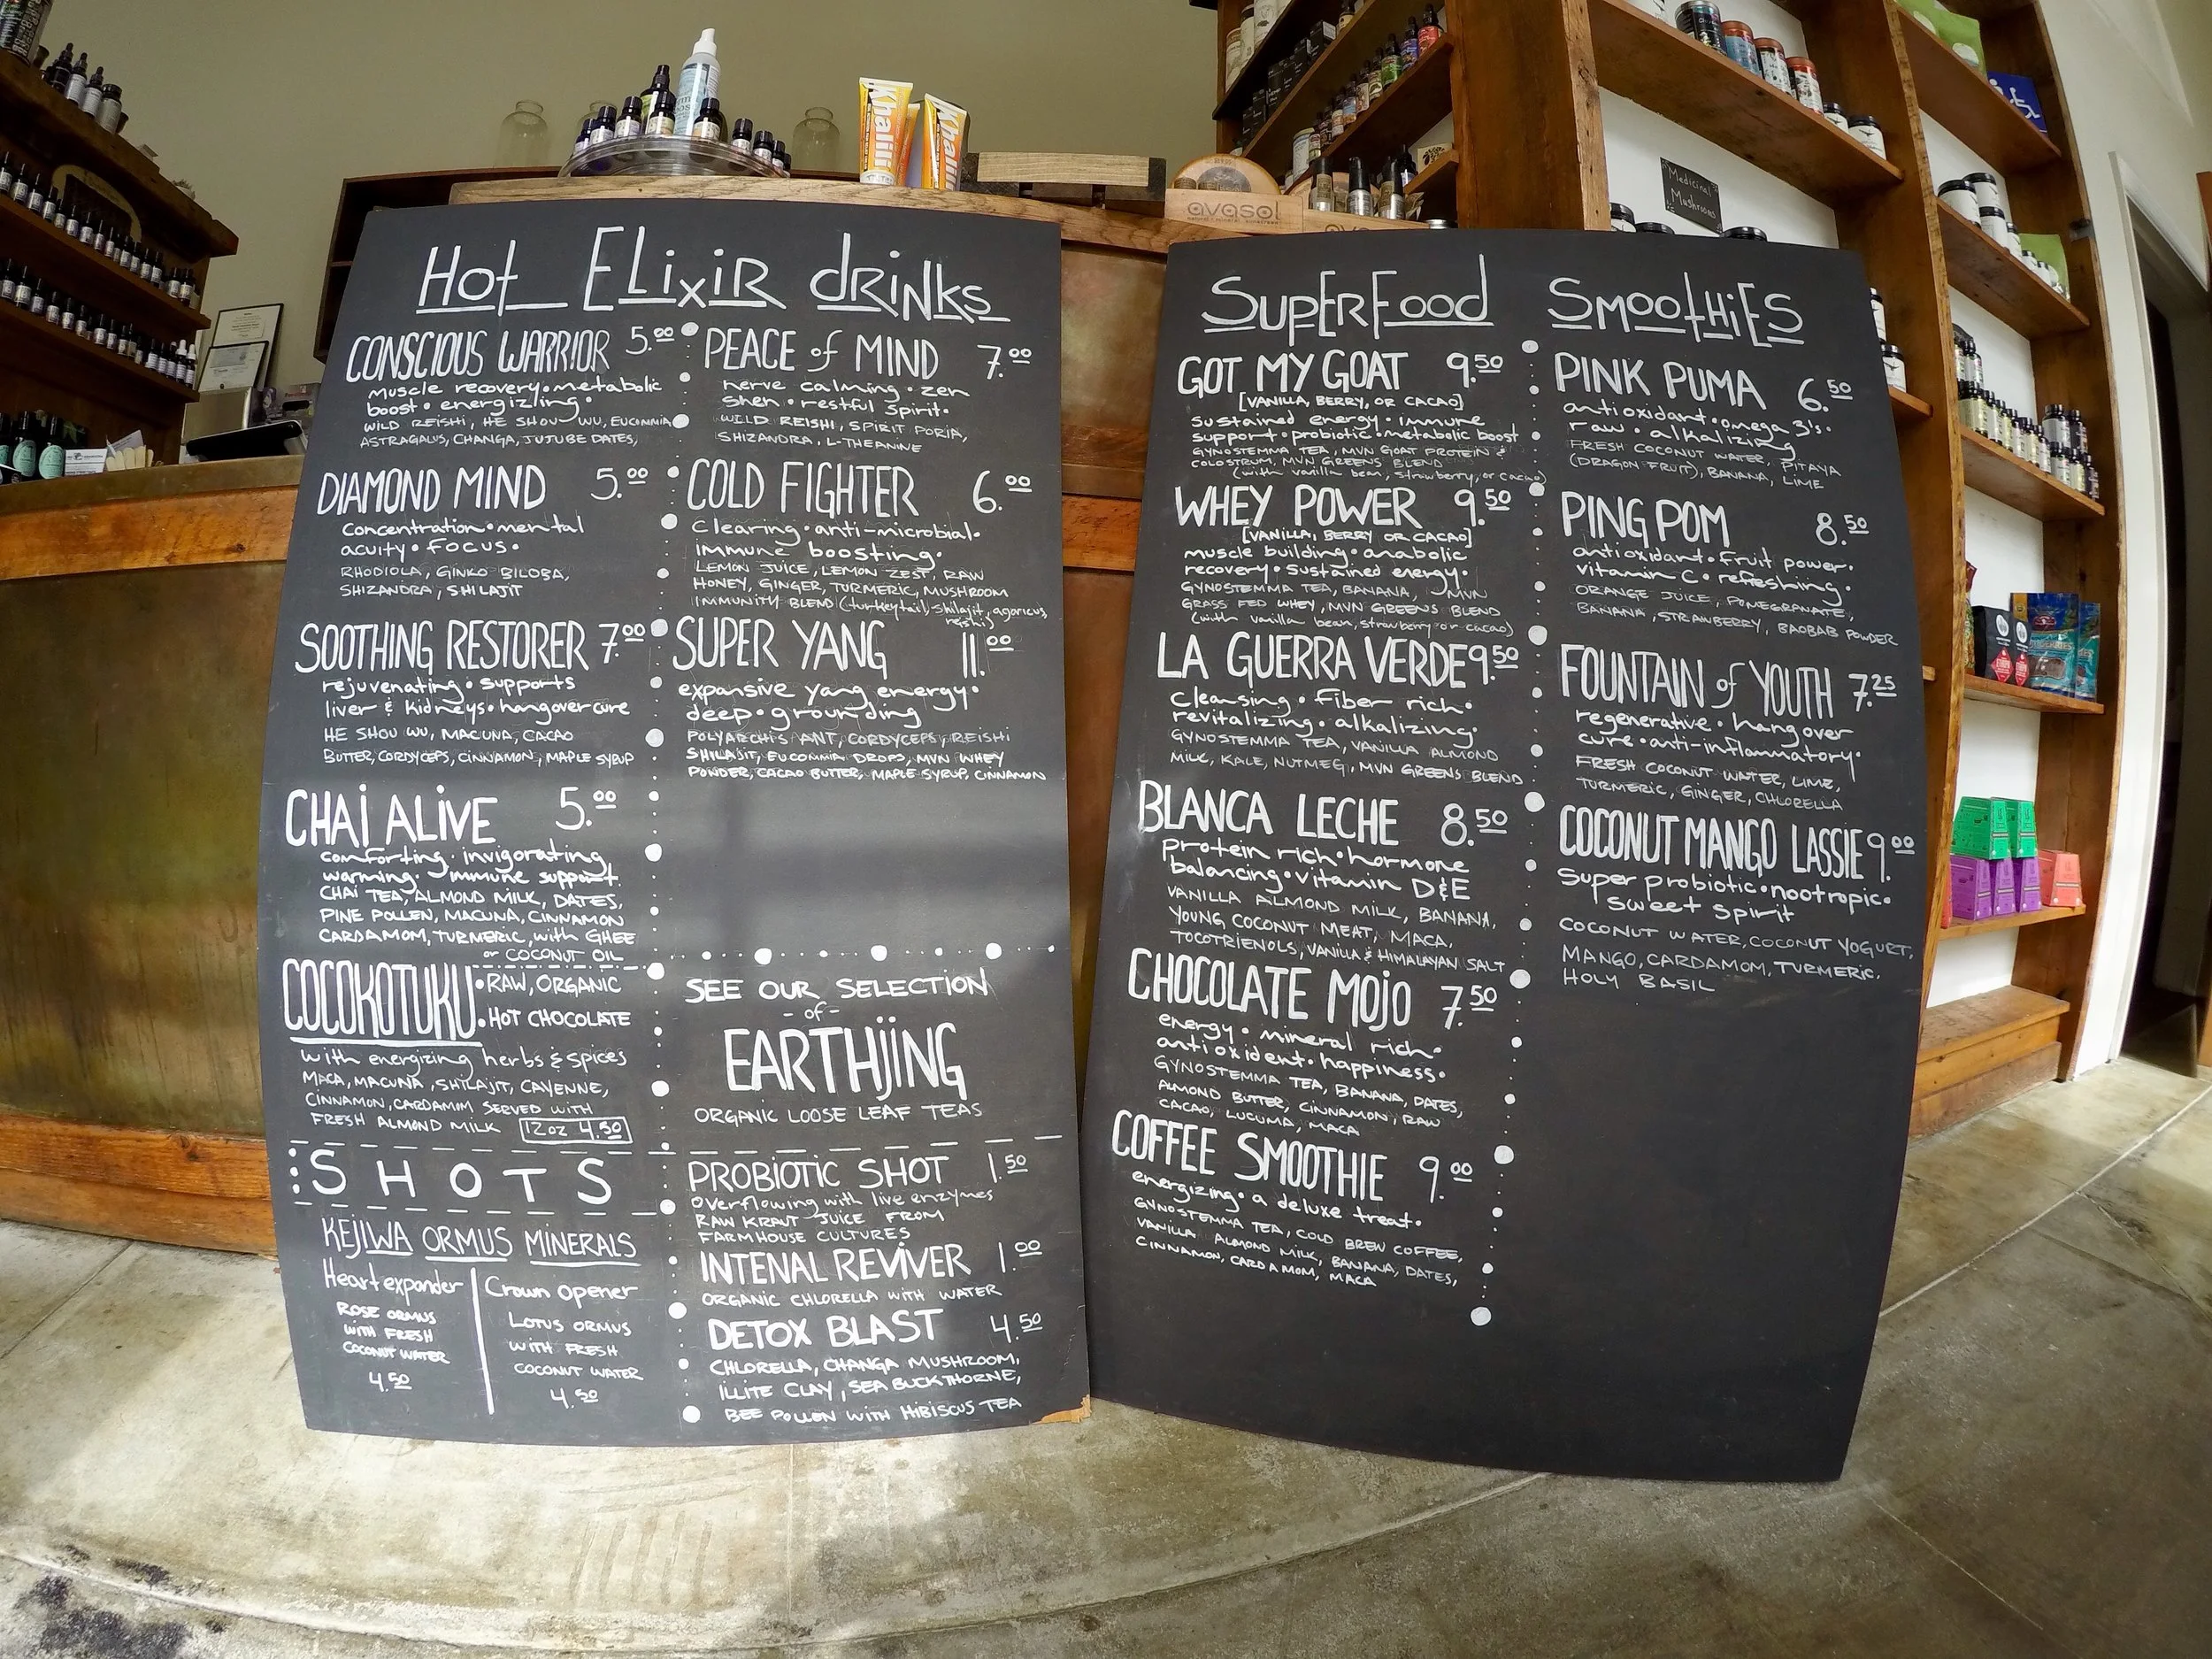 Khalili
Khalili
avasol
Medicinal
Mushrooms
Hot Elixir drinks
CONSCIOUS WARRIOR 5.00
muscle recovery • metabolic
boost • energizing •
WILD REISHI, HE SHOU WU, EUCOMMIA
ASTRAGALUS, CHANGA, JUJUBE DATES,
DIAMOND MIND 5.00
Concentration • mental
acuity • focus •
RHODIOLA, GINKO BILOBA,
SHIZANDRA, SHILAJIT
SOOTHING RESTORER 7.00
rejuvenating • supports
liver & kidneys • hangover cure
HE SHOU WU, MACUNA, CACAO
BUTTER, CORDYCEPS, CINNAMON, MAPLE SYRUP
CHAI ALIVE 5.00
comforting • invigorating
warming • immune support
CHAI TEA, ALMOND MILK, DATES,
PINE POLLEN, MACUNA, CINNAMON
CARDAMOM, TURMERIC, with GHEE
or COCONUT OIL
COCOKOTUKU • RAW, ORGANIC
• HOT CHOCOLATE
with energizing herbs & spices
MACA, MACUNA, SHILAJIT, CAYENNE,
CINNAMON, CARDAMIM SERVED WITH
FRESH ALMOND MILK 12oz 4.50
SHOTS
KEJIWA ORMUS MINERALS
Heart expander
ROSE ORMUS
WITH FRESH
COCONUT WATER
4.50
Crown opener
LOTUS ORMUS
WITH FRESH
COCONUT WATER
4.50
PEACE of MIND 7.00
nerve calming • zen
shen • restful spirit •
WILD REISHI, SPIRIT PORIA,
SHIZANDRA, L-THEANINE
COLD FIGHTER 6.00
Clearing • anti-microbial •
immune boosting •
LEMON JUICE, LEMON ZEST, RAW
HONEY, GINGER, TURMERIC, MUSHROOM
IMMUNITY BLEND (turkey tail, shilajit, agaricus,
reishi)
SUPER YANG 11.00
expansive yang energy •
deep • grounding
POLYARCHIS ANT, CORDYCEPS, REISHI
SHILAJIT, EUCOMMIA DROPS, MVN WHEY
POWDER, CACAO BUTTER, MAPLE SYRUP, CINNAMON
SEE OUR SELECTION
- of -
EARTHJING
ORGANIC LOOSE LEAF TEAS
PROBIOTIC SHOT 1.50
Overflowing with live enzymes
RAW KRAUT JUICE FROM
FARMHOUSE CULTURES
INTENAL REVIVER 1.00
ORGANIC CHLORELLA WITH WATER
DETOX BLAST 4.50
CHLORELLA, CHANGA MUSHROOM,
ILLITE CLAY, SEA BUCKTHORNE,
BEE POLLEN WITH HIBISCUS TEA
SuperFood Smoothies
GOT MY GOAT 9.50
[VANILLA, BERRY, OR CACAO]
sustained energy • immune
support • probiotic • metabolic boost
GYNOSTEMMA TEA, MVN GOAT PROTEIN &
COLOSTRUM, MVN GREENS BLEND
(with vanilla bean, strawberry, or cacao)
WHEY POWER 9.50
[VANILLA, BERRY OR CACAO]
muscle building • anabolic
recovery • sustained energy •
GYNOSTEMMA TEA, BANANA, MVN
GRASS FED WHEY, MVN GREENS BLEND
(with vanilla bean, strawberry or cacao)
LA GUERRA VERDE 9.50
Cleansing • fiber rich •
revitalizing • alkalizing •
GYNOSTEMMA TEA, VANILLA ALMOND
MILK, KALE, NUTMEG, MVN GREENS BLEND
BLANCA LECHE 8.50
Protein rich • hormone
balancing • vitamin D&E
VANILLA ALMOND MILK, BANANA,
YOUNG COCONUT MEAT, MACA,
TOCOTRIENOLS, VANILLA & HIMALAYAN SALT
CHOCOLATE MOJO 7.50
energy • mineral rich •
antioxident • happiness •
GYNOSTEMMA TEA, BANANA, DATES,
ALMOND BUTTER, CINNAMON, RAW
CACAO, LUCUMA, MACA
COFFEE SMOOTHIE 9.00
energizing • a deluxe treat •
GYNOSTEMMA TEA, COLD BREW COFFEE,
VANILLA ALMOND MILK, BANANA, DATES,
CINNAMON, CARDAMOM, MACA
PINK PUMA 6.50
antioxidant • omega 3's •
raw • alkalizing
FRESH COCONUT WATER, PITAYA
(DRAGON FRUIT), BANANA, LIME
PING POM 8.50
antioxidant • Fruit power •
vitamin C • refreshing •
ORANGE JUICE, POMEGRANATE,
BANANA, STRAWBERRY, BAOBAB POWDER
FOUNTAIN of YOUTH 7.25
regenerative • hangover
cure • anti-inflammatory •
FRESH COCONUT WATER, LIME,
TURMERIC, GINGER, CHLORELLA
COCONUT MANGO LASSIE 9.00
Super probiotic • nootropic •
sweet spirit
COCONUT WATER, COCONUT YOGURT,
MANGO, CARDAMOM, TURMERIC,
HOLY BASIL